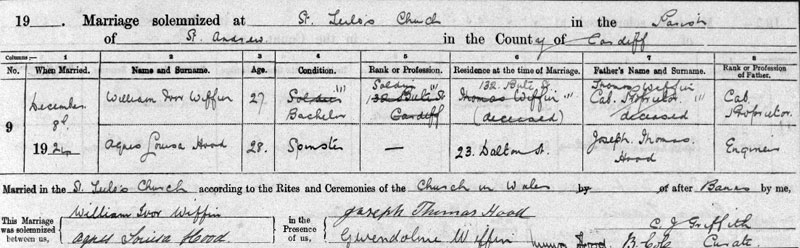 19    . Marriage solemnized at St. Teilo's Church in the Parish
of St. Andrew in the County of Cardiff
Columns:— 1 2 3 4 5 6 7 8
No. When Married. Name and Surname. Age. Condition. Rank or Profession. Residence at the time of Marriage. Father's Name and Surname. Rank or Profession of Father.
9 December 8th, 19 William Ivor Wiffin 27 Soldier Bachelor Soldier 132 Bute St Cardiff 132. Bute St Thomas Wiffin (deceased) Thomas Wiffin Cab. Proprietor deceased Cab. Proprietor.
Agnes Louisa Hood 28. Spinster — 23. Dalton St. Joseph Thomas Hood Engineer
Married in the St. Teilo's Church according to the Rites and Ceremonies of the Church in Wales by or after Banns by me,
This Marriage was solemnized between us, William Ivor Wiffin in the Presence of us, Joseph Thomas Hood C. J. Griffith
Agnes Louisa Hood Gwendoline Wiffin Hood. Curate